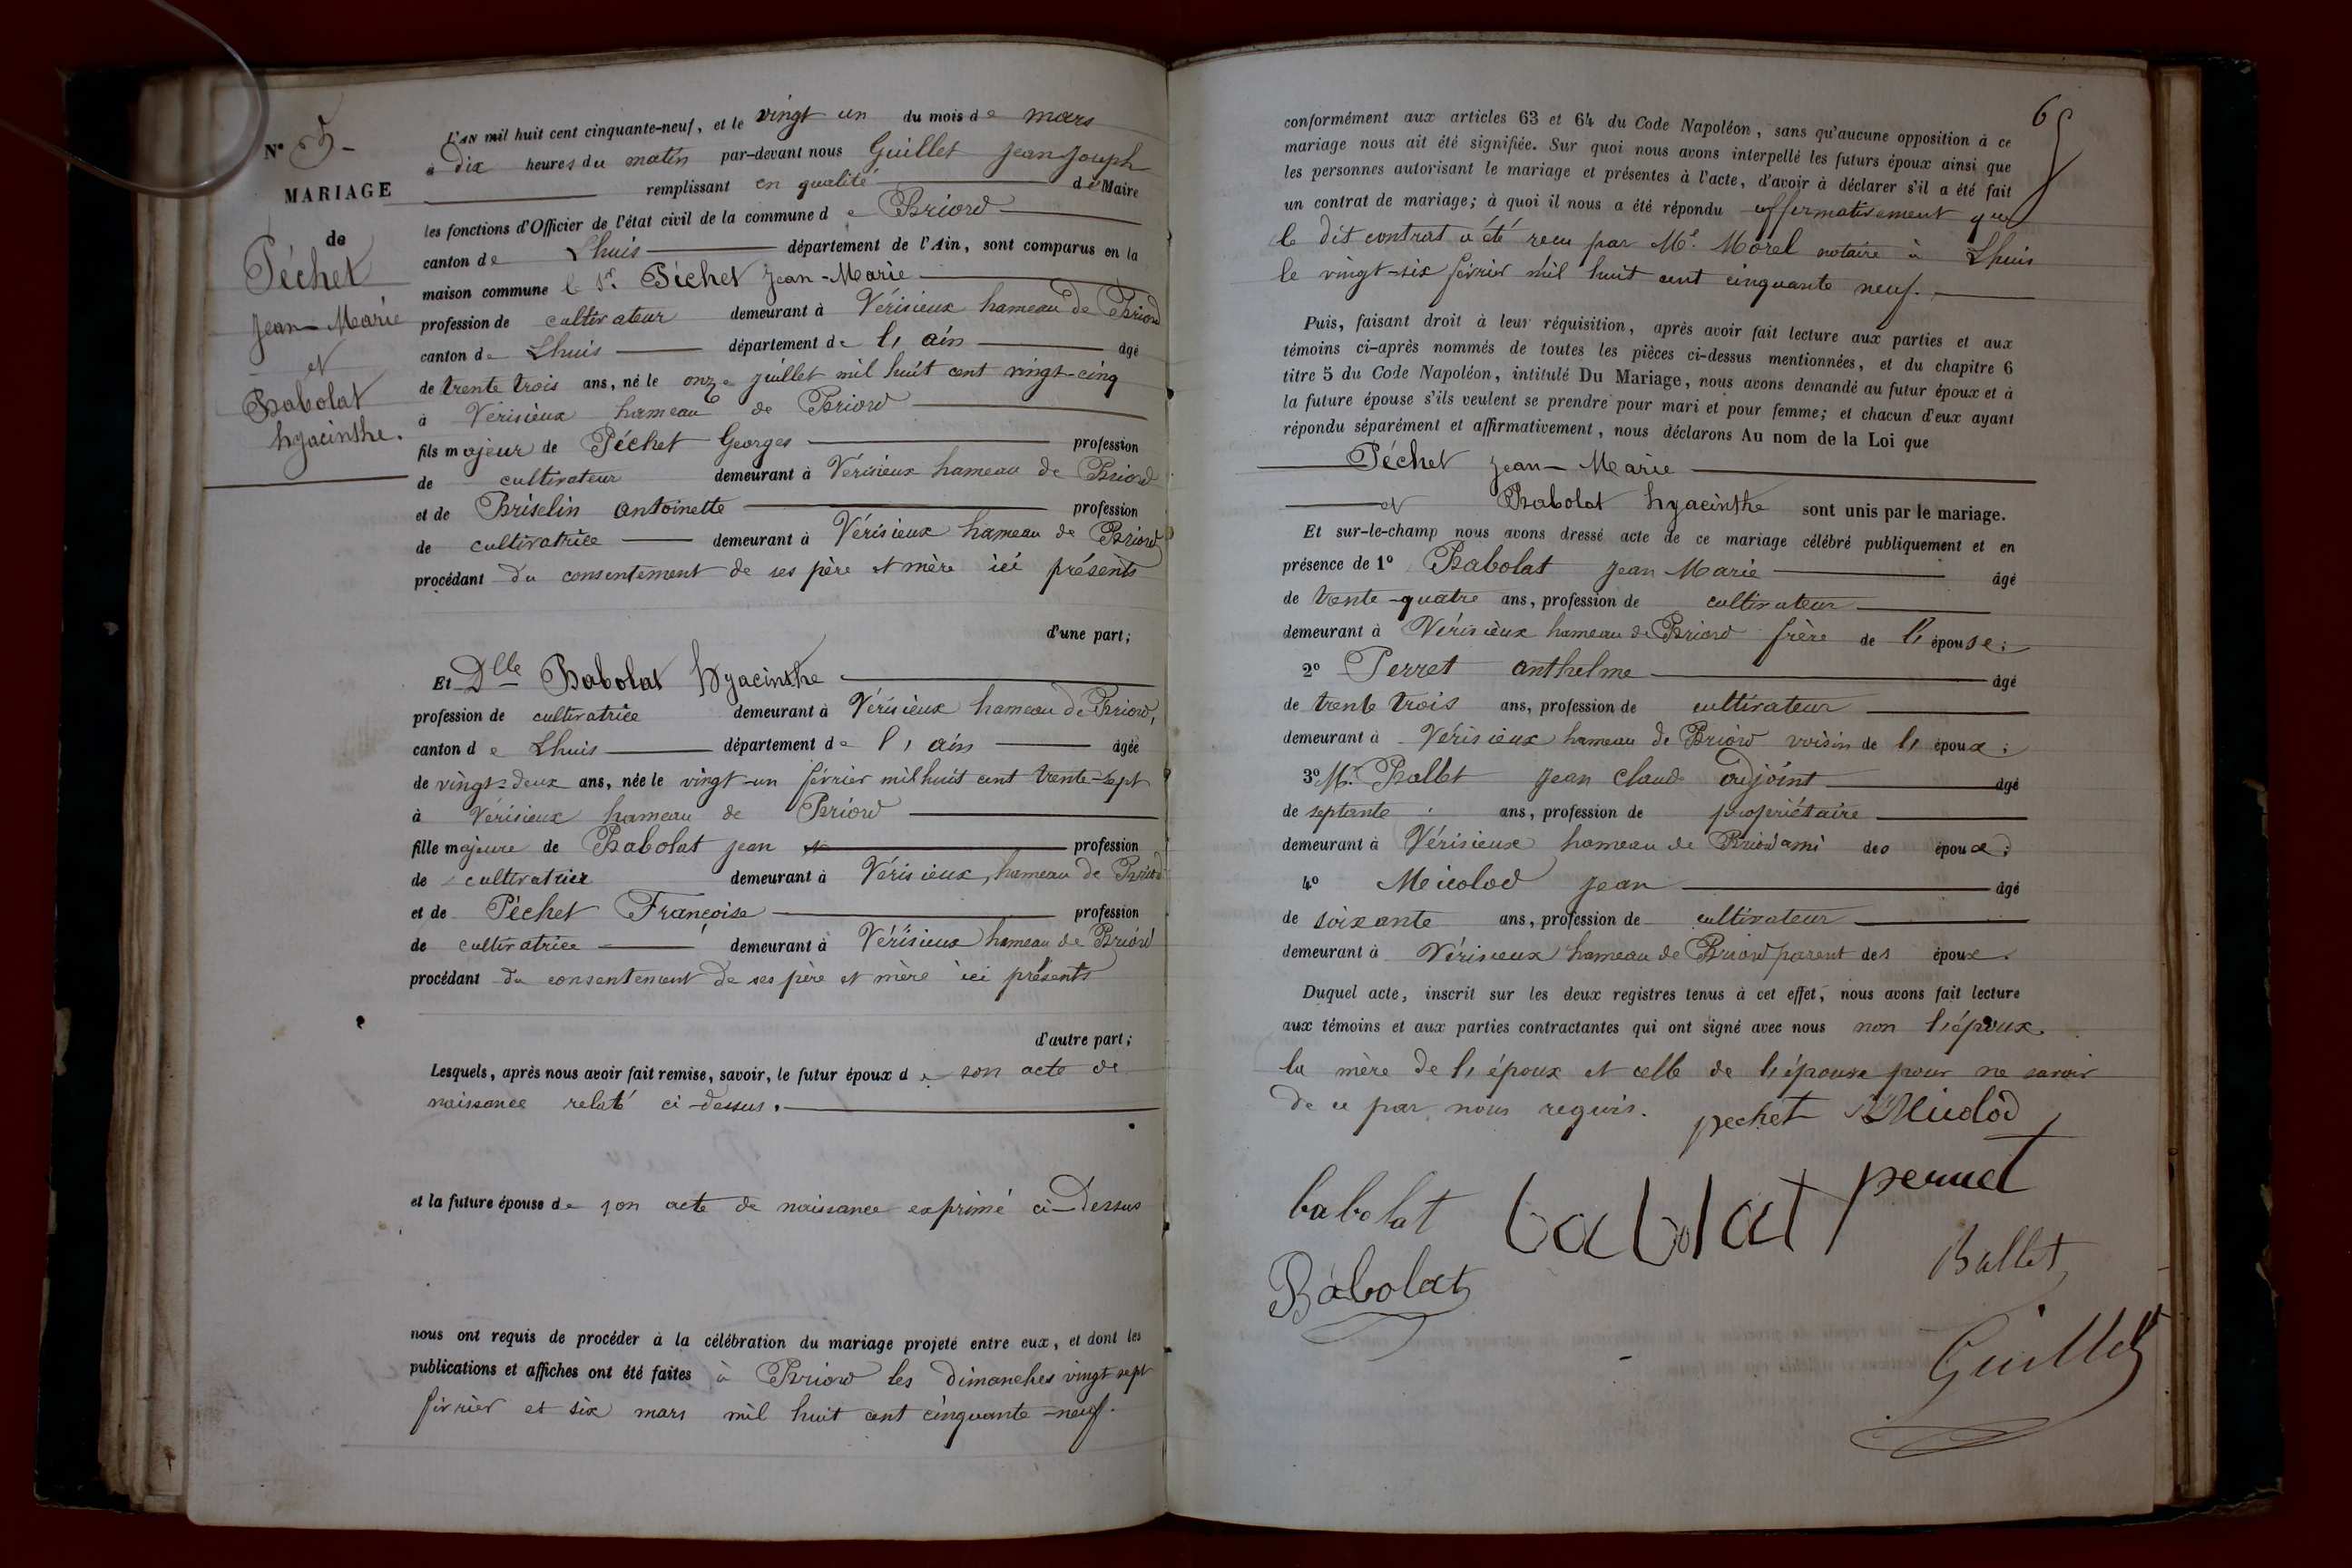 N° 5 -
MARIAGE
de
Péchet
Jean-Marie
et
Babolat
hyacinthe.
L'AN mil huit cent cinquante-neuf, et le vingt un du mois de mars
à dix heures du matin par-devant nous Guillet Jean Joseph
remplissant en qualité de Maire
les fonctions d'Officier de l'état civil de la commune de Briord
canton de Lhuis département de l'Ain, sont comparus en la
maison commune le Sr. Péchet Jean-Marie
profession de cultivateur demeurant à Vérisieux hameau de Briord
canton de Lhuis département de l'ain âgé
de trente trois ans, né le onze juillet mil huit cent vingt-cinq
à Vérisieux hameau de Briord
fils majeur de Péchet Georges profession
de cultivateur demeurant à Vérisieux hameau de Briord
et de Briselin antoinette profession
de cultivatrice demeurant à Vérisieux hameau de Briord
procédant du consentement de ses père et mère ici présents
d'une part;
Et Dlle Babolat hyacinthe
profession de cultivatrice demeurant à Vérisieux hameau de Briord,
canton de Lhuis département de l'ain âgée
de vingt-deux ans, née le vingt-un février mil huit cent trente-sept
à Vérisieux hameau de Briord
fille majeure de Babolat jean et profession
de cultivatrice demeurant à Vérisieux, hameau de Briord
et de Péchet Françoise profession
de cultivatrice demeurant à Vérisieux hameau de Briord
procédant du consentement de ses père et mère ici présents
d'autre part;
Lesquels, après nous avoir fait remise, savoir, le futur époux de son acte de
naissance relaté ci-dessus.
et la future épouse de son acte de naissance exprimé ci-dessus
nous ont requis de procéder à la célébration du mariage projeté entre eux, et dont les
publications et affiches ont été faites à Briord les dimanches vingt sept
février et six mars mil huit cent cinquante-neuf.
conformément aux articles 63 et 64 du Code Napoléon, sans qu'aucune opposition à ce
mariage nous ait été signifiée. Sur quoi nous avons interpellé les futurs époux ainsi que
les personnes autorisant le mariage et présentes à l'acte, d'avoir à déclarer s'il a été fait
un contrat de mariage; à quoi il nous a été répondu affirmativement que
le dit contrat a été reçu par Me. Morel notaire à Lhuis
le vingt-six février mil huit cent cinquante neuf.
Puis, faisant droit à leur réquisition, après avoir fait lecture aux parties et aux
témoins ci-après nommés de toutes les pièces ci-dessus mentionnées, et du chapitre 6
titre 5 du Code Napoléon, intitulé Du Mariage, nous avons demandé au futur époux et à
la future épouse s'ils veulent se prendre pour mari et pour femme; et chacun d'eux ayant
répondu séparément et affirmativement, nous déclarons Au nom de la Loi que
Péchet Jean-Marie
et Babolat hyacinthe sont unis par le mariage.
Et sur-le-champ nous avons dressé acte de ce mariage célébré publiquement et en
présence de 1° Babolat Jean Marie âgé
de trente-quatre ans, profession de cultivateur
demeurant à Vérisieux hameau de Briord frère de l'épouse;
2° Perret anthelme âgé
de trente trois ans, profession de cultivateur
demeurant à Vérisieux hameau de Briord voisin de l'époux;
3° Mr. Ballet Jean Claude adjoint âgé
de septante ans, profession de propriétaire
demeurant à Vérisieux hameau de Briord ami des époux;
4° Micolod Jean âgé
de soixante ans, profession de cultivateur
demeurant à Vérisieux hameau de Briord parent des époux.
Duquel acte, inscrit sur les deux registres tenus à cet effet, nous avons fait lecture
aux témoins et aux parties contractantes qui ont signé avec nous non l'époux
la mère de l'époux et celle de l'épouse pour ne savoir
de ce par nous requis.
pechet Micolod
babolat babolat perret
Babolat Ballet
Guillet